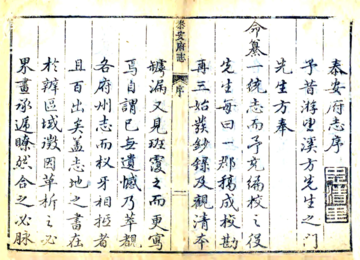 泰安府志序
予昔游望溪方先生之門
先生方奉
命纂一統志而予充編校之役
先生每曰一郡稿成校勘
再三始發鈔錄及觀清本
泰安府志
序
一
罅漏又見班覆之而更寫
焉自謂已無遺憾乃萃都
各府州志而权牙相抵者
且百出矣蓋志地之書在
於辨區域溯因革析之必
界畫承遞瞭然合之必脉